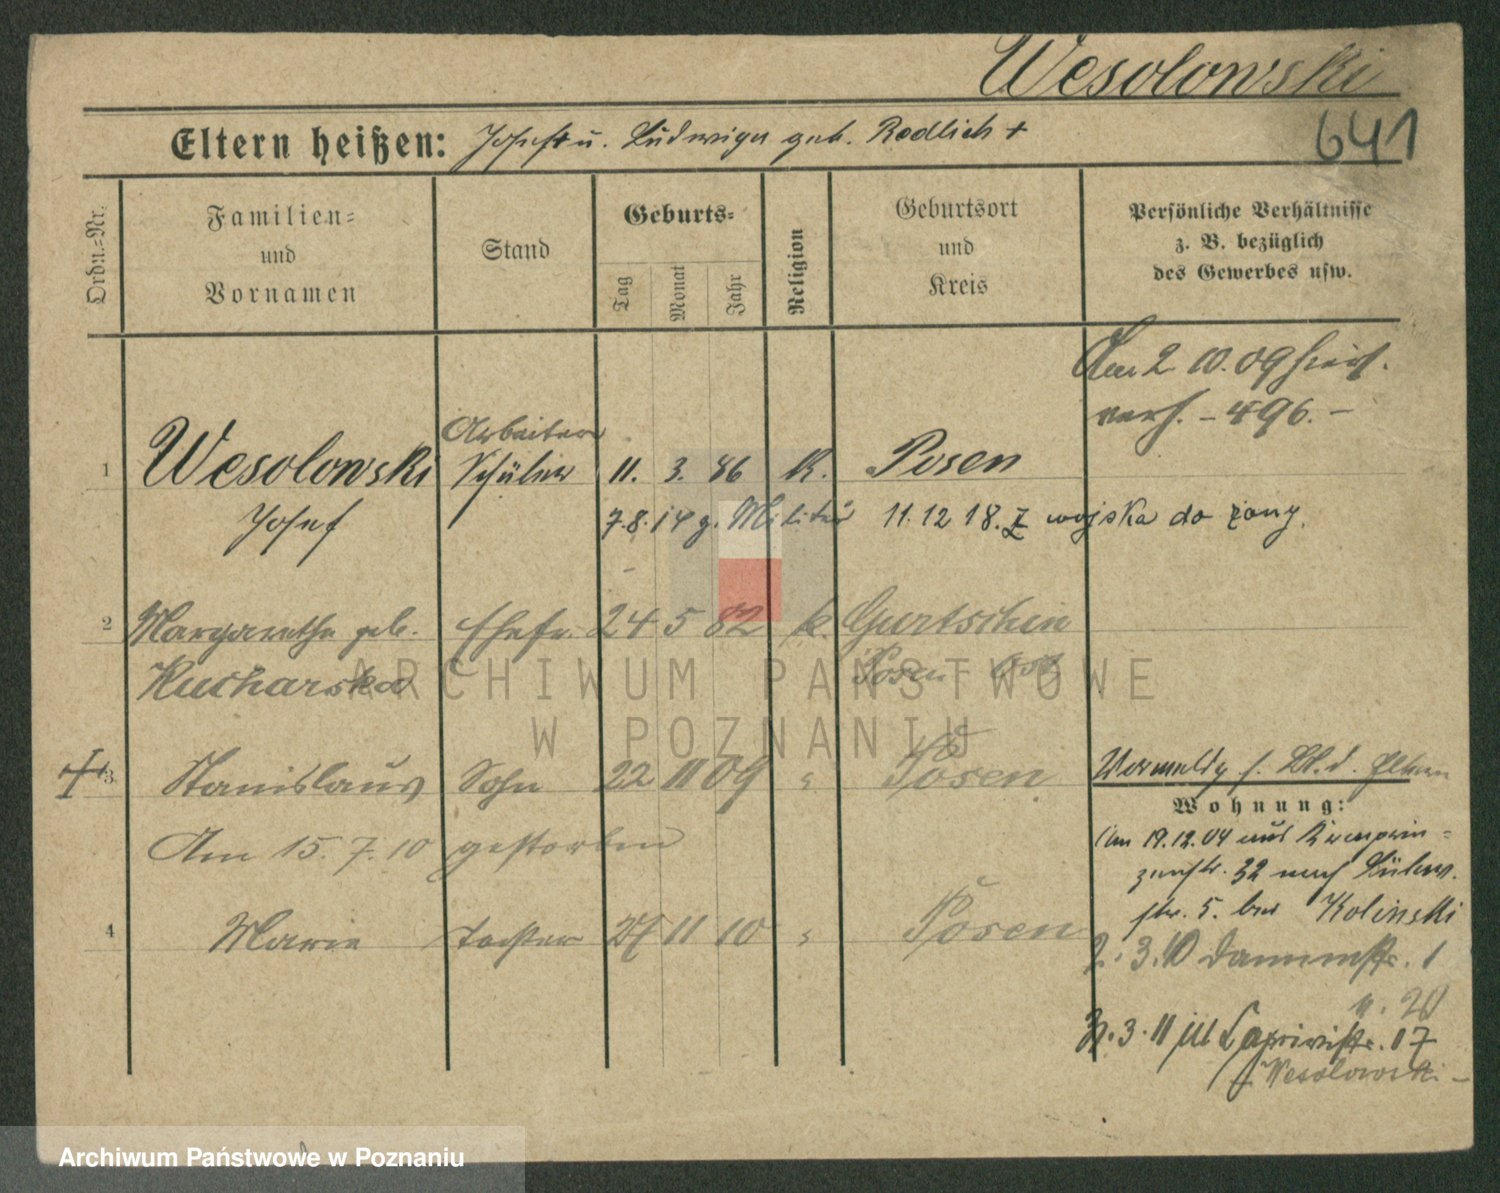 Wesolowski
641
Eltern heißen: Josef + u. Ludwiga geb. Redlich +
Ordn.=Nr.
Familien=
und
Vornamen
Stand
Geburts=
Tag
Monat
Jahr
Religion
Geburtsort
und
Kreis
Persönliche Verhältnisse
z. B. bezüglich
des Gewerbes usw.
Am 2 10. 09 hier
verh. - 496. -
Arbeiter
1 Wesolowski Schüler 11. 3. 86 K. Posen
Josef 7. 8. 14 z. Militär 11. 12 18. z wojska do żony.
2 Margarethe geb. Ehefr. 24 5 82 k. Gurtschin
Kucharska Posen Ost
+ 3 Stanislaus Sohn 22 11 09 " Posen
Am 15. 7. 10 gestorben
4 Marie Tochter 27 11 10 " Posen
Vormeldg s. Bl. d. Eltern
Wohnung:
Am 19.12.04 aus Kronprin=
zenstr. 32 nach Bülow.
str. 5. bei Kolinski
2. 3. 10 Dammstr. 1
n. 20
3. 11 Caprivistr. 17
Wesolowski -
ARCHIWUM PAŃSTWOWE
W POZNANIU
Archiwum Państwowe w Poznaniu